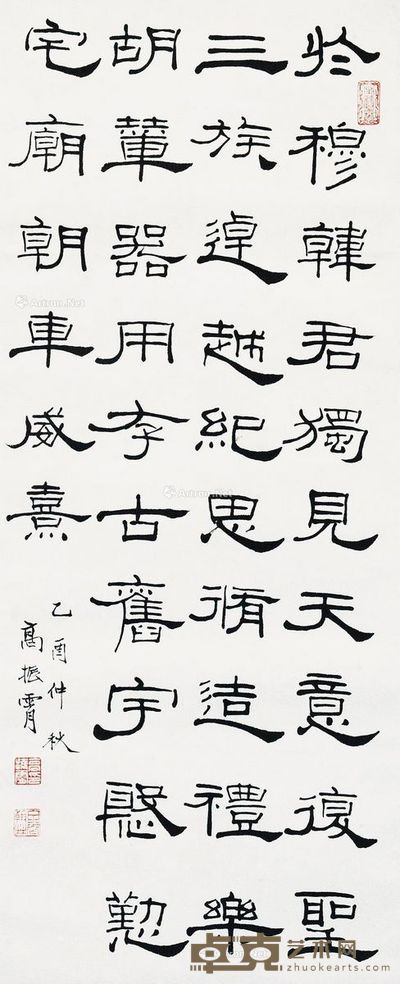 於穆韓君獨見天意復聖
三族逴越紀思脩造禮樂
胡輦器用存古舊宇慇懃
宅廟朝車威熹
乙酉仲秋
高振霄
Artron.Net
Artron.Net
卓克艺术网
zhuokearts.com